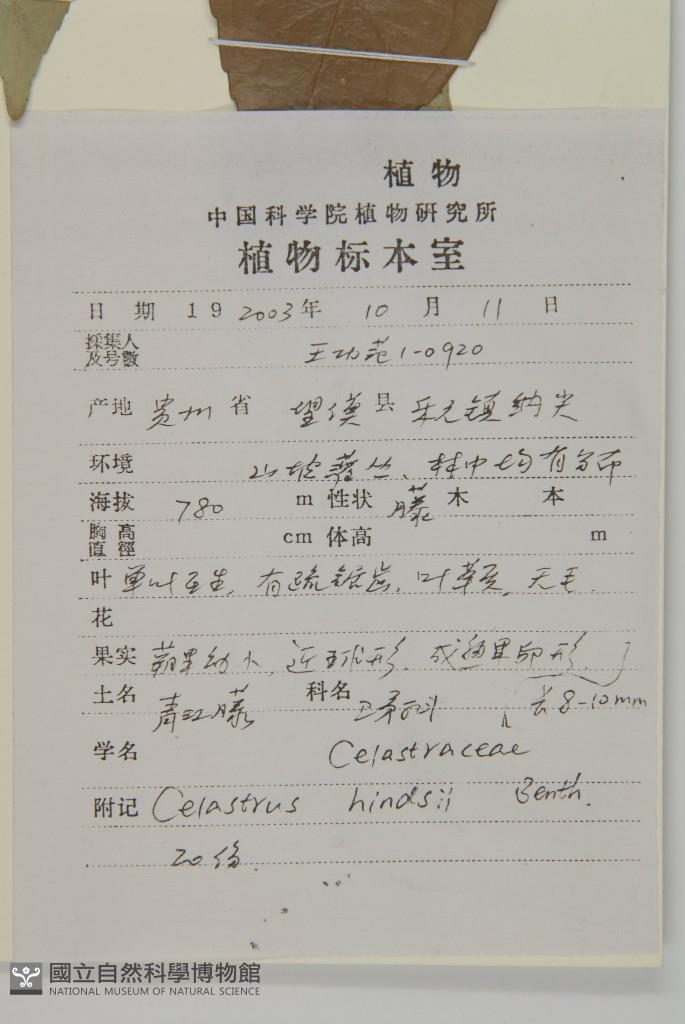 植物
中国科学院植物研究所
植物标本室
日 期 19 2003年 10 月 11 日
採集人
及号數 王功范 1-0920
产地 贵州 省 望谟 县 乐元镇纳尖
环境 山坡灌丛、林中均有分布
海拔 780 m 性状 藤 木 本
胸高
直徑 cm 体高 m
叶 单叶互生, 有疏锯齿, 叶革质, 无毛.
花
果实 蒴果幼小, 近球形. 成熟果卵形,
长8-10mm
土名 青江藤 科名 卫矛科
学名 Celastraceae
附记 Celastrus hindsii Benth.
20份.
國立自然科學博物館
NATIONAL MUSEUM OF NATURAL SCIENCE